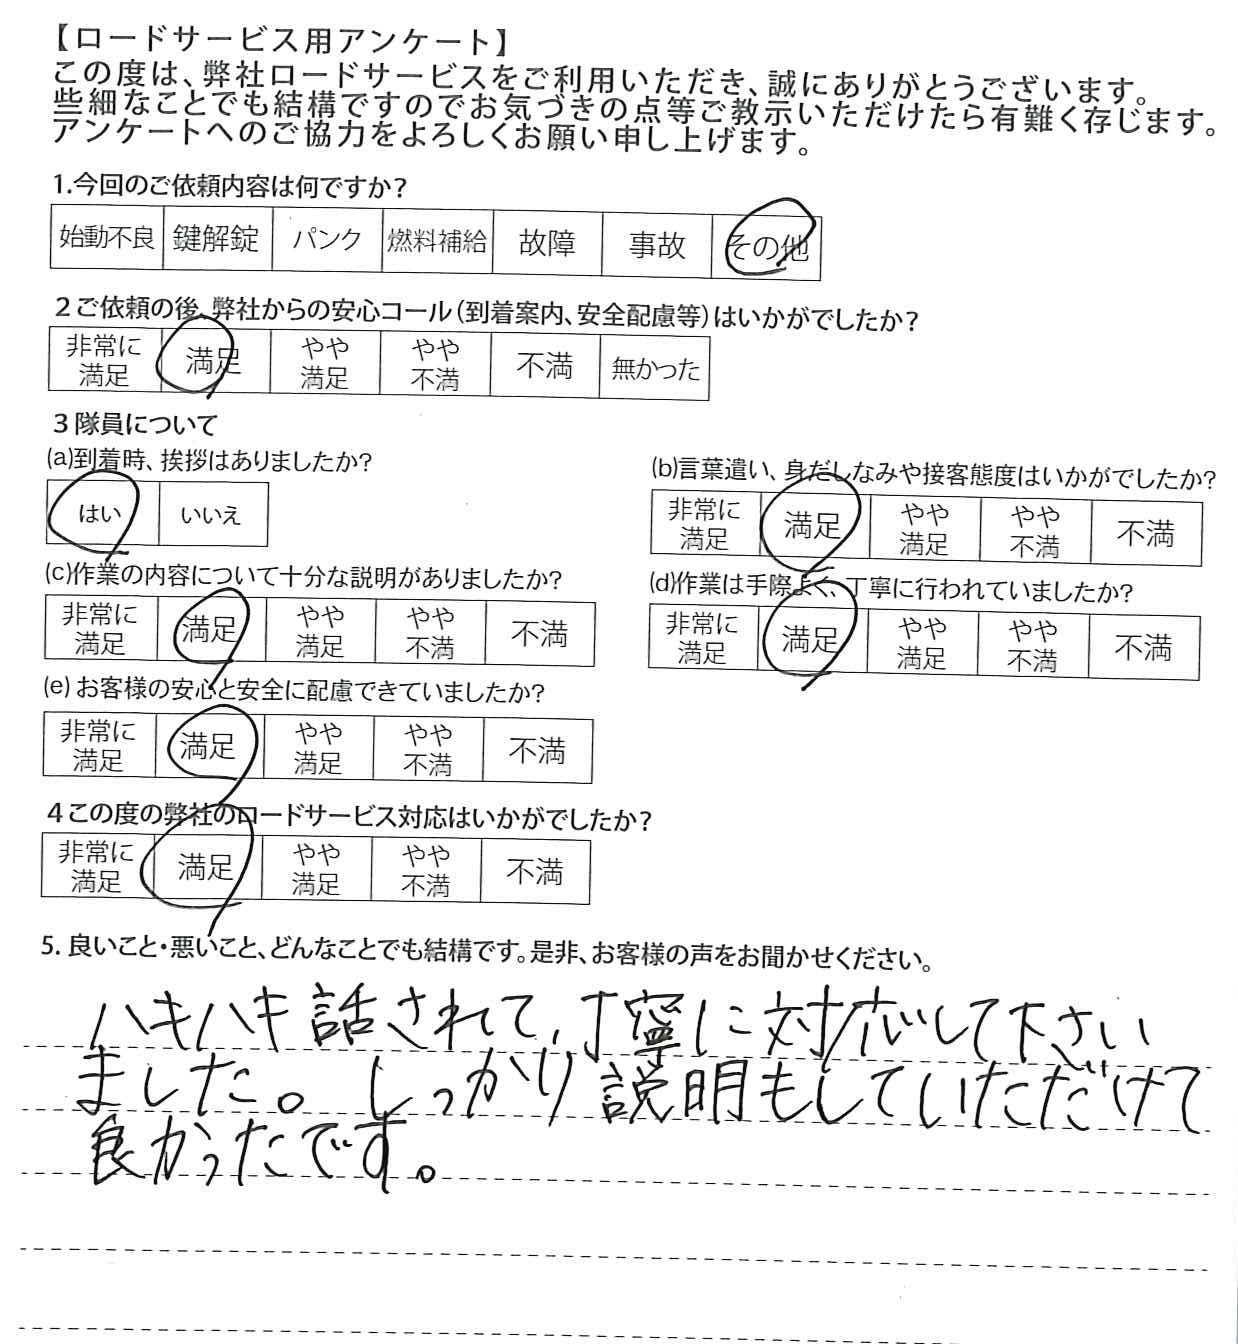 【ロードサービス用アンケート】
この度は、弊社ロードサービスをご利用いただき、誠にありがとうございます。
些細なことでも結構ですのでお気づきの点等ご教示いただけたら有難く存じます。
アンケートへのご協力をよろしくお願い申し上げます。
1.今回のご依頼内容は何ですか?
始動不良 鍵解錠 パンク 燃料補給 故障 事故 その他
2ご依頼の後、弊社からの安心コール(到着案内、安全配慮等)はいかがでしたか?
非常に満足 満足 やや満足 やや不満 不満 無かった
3隊員について
(a)到着時、挨拶はありましたか?
はい いいえ
(b)言葉遣い、身だしなみや接客態度はいかがでしたか?
非常に満足 満足 やや満足 やや不満 不満
(c)作業の内容について十分な説明がありましたか?
非常に満足 満足 やや満足 やや不満 不満
(d)作業は手際よく、丁寧に行われていましたか?
非常に満足 満足 やや満足 やや不満 不満
(e)お客様の安心と安全に配慮できていましたか?
非常に満足 満足 やや満足 やや不満 不満
4この度の弊社のロードサービス対応はいかがでしたか?
非常に満足 満足 やや満足 やや不満 不満
5.良いこと・悪いこと、どんなことでも結構です。是非、お客様の声をお聞かせください。
ハキハキ話されて、丁寧に対応して下さい
ました。しっかり説明もしていただけて
良かったです。